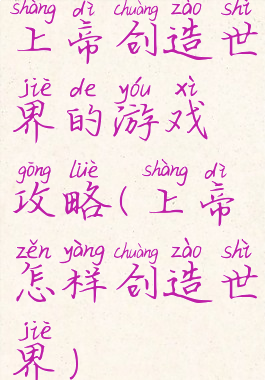 shàng dì chuàng zào shì
上帝创造世
jiè de yóu xì
界的游戏
gōng lüè shàng dì
攻略(上帝
zěn yàng chuàng zào shì
怎样创造世
jiè
界)